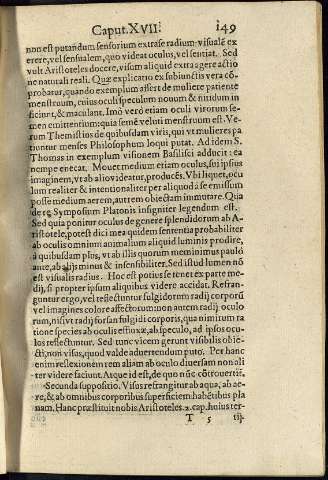 Caput.XVII. 149
non est putandum sensorium extra se radium visualē ex
erere, vel sensualem, quo videat oculus, vel sentiat. Sed
vult Aristoteles docere, visum aliquid extra agere actio
ne naturali reali. Quæ explicatio ex subiunctis vera cō-
probatur, quando exemplum affert de muliere patiente
menstruum, cuius oculi speculum nouum & nitidum in
ficiunt, & maculant. Imò verò etiam oculi virorum se-
men emittentium; quia semē veluti menstruum est. Ve-
rum Themistius de quibusdam viris, qui vt mulieres pa
tiuntur menses Philosophum loqui putat. Ad idem S.
Thomas in exemplum visionem Basilisci adducit: ea
nempe enecat. Mouet medium etiam oculus, sui ipsius
imaginem, vt ab alio videatur, producēs. Vbi liquet, ocu
lum realiter & intentionaliter per aliquod à se emissum
posse medium aerem, autrem obiectam immutare. Qua
de re Symposium Platonis insigniter legendum est.
Sed quia ponitur oculus de genere splendidorum ab A-
ristotele, potest dici mea quidem sententia probabiliter
ab oculis omnium animalium aliquid luminis prodire,
à quibusdam plus, vt ab illis quorum meminimus paulò
ante, ab alijs minus & insensibiliter. Sed istud lumen nō
est visualis radius. Hoc est potiùs se tenet ex parte me-
dij, si propter ipsum aliquibus videre accidat. Refran-
guntur ergo, vel reflectuntur fulgidorum radij corporū
vel imagines colore affectorum: non autem radij oculo
rum, nisi vt radij forsan fulgidi corporis, qua nimirum ra
tione species ab oculis effluxæ, ab speculo, ad ipsos ocu
los reflectuntur. Sed tunc vicem gerunt visibilis obie-
cti, non visus, quod valde aduertendum puto. Per hanc
enim reflexionem rem aliam ab oculo diuersam non ali
ter videre faciunt. Atque id est, de quo nūc cōtrouertiť.
Secunda suppositio. Visus refrangitur ab aqua, ab ae-
re, & ab omnibus corporibus superficiem habētibus pla
nam. Hanc præstituit nobis Aristoteles 2. cap. huius ter-
T 5 tij.